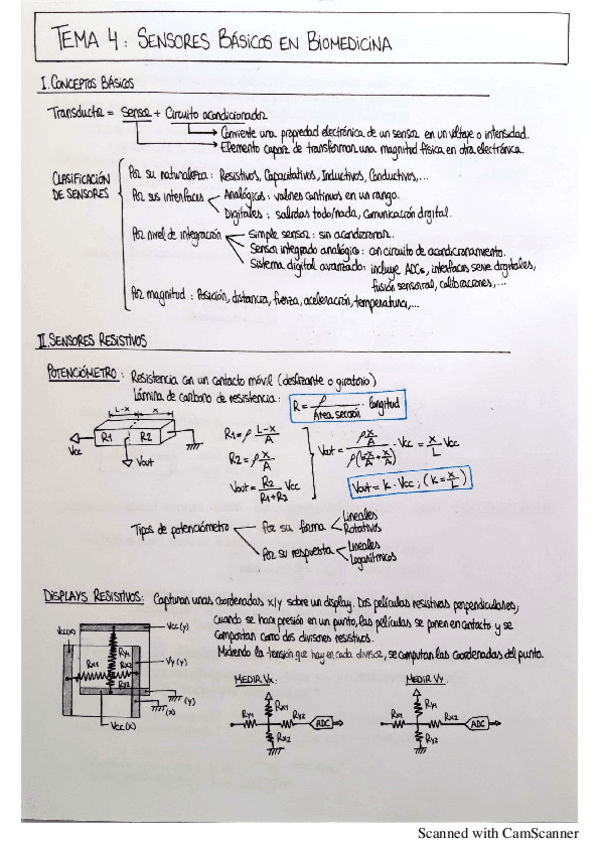 TEMA 4: SENSORES BÁSICOS EN BIOMEDICINA
I. CONCEPTOS BÁSICOS
Transductor = Sensor + Circuito acondicionador
Convierte una propiedad electrónica de un sensor en un voltaje o intensidad.
Elemento capaz de transformar una magnitud física en otra electrónica.
CLASIFICACIÓN DE SENSORES
Por su naturaleza: Resistivos, Capacitativos, Inductivos, Conductivos,...
Por sus interfaces
Analógicos: valores continuos en un rango.
Digitales: salidas todo/nada, comunicación digital.
Por nivel de integración
Simple sensor: sin acondicionar.
Sensor integrado analógico: con circuito de acondicionamiento.
Sistema digital avanzado: incluye ADCs, interfaces serie digitales,
fusión sensorial, calibraciones,...
Por magnitud: Posición, distancia, fuerza, aceleración, temperatura,...
II. SENSORES RESISTIVOS
POTENCIÓMETRO: Resistencia con un contacto móvil (deslizante o giratorio)
Lámina de carbono de resistencia: R = ρ / Área sección · longitud
L-x x
R1 R2
Vcc
Vout
R1 = ρ L-x / A
R2 = ρ x / A
Vout = R2 / R1+R2 Vcc
Vout = ρ x/A / ρ(L-x/A + x/A) · Vcc = x/L Vcc
Vout = k · Vcc; (k = x/L)
Tipos de potenciómetro
Por su forma
Lineales
Rotativos
Por su respuesta
Lineales
Logarítmicos
DISPLAYS RESISTIVOS: Capturan unas coordenadas x/y sobre un display. Dos películas resistivas perpendiculares,
cuando se hace presión en un punto, las películas se ponen en contacto y se
comportan como dos divisores resistivos.
Midiendo la tensión que hay en cada divisor, se computan las coordenadas del punto.
Vcc(y)
Ry1
Rx1 Rx2
Ry2
Vy (y)
(y)
(x)
Vcc(x)
MEDIR Vx:
Rx1
Ry1 Ry2 ADC
Rx2
MEDIR Vy:
Ry1
Rx1 Rx2 ADC
Ry2
Scanned with CamScanner